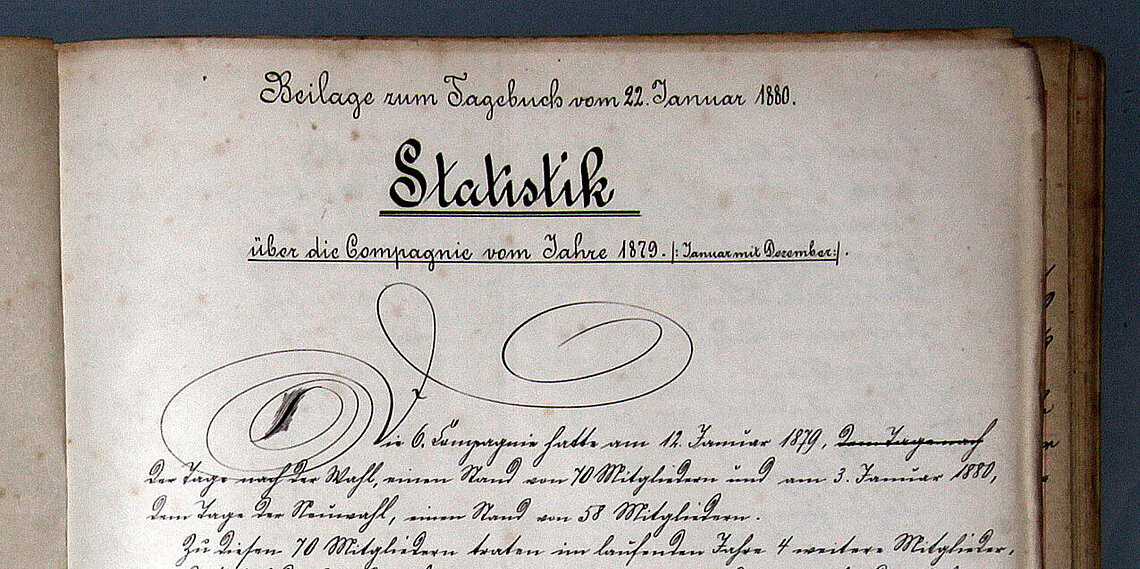 Beilage zum Tagebuch vom 22. Januar 1880.
Statistik
über die Compagnie vom Jahre 1879. |: Januar mit Dezember :|.
Die 6. Compagnie hatte am 12. Januar 1879, dem Tage nach
der Tage nach der Wahl, einen Stand von 70 Mitgliedern und am 3. Januar 1880,
dem Tage der Neuwahl, einen Stand von 58 Mitgliedern.
Zu diesen 70 Mitgliedern traten im laufenden Jahre 4 weitere Mitglieder,